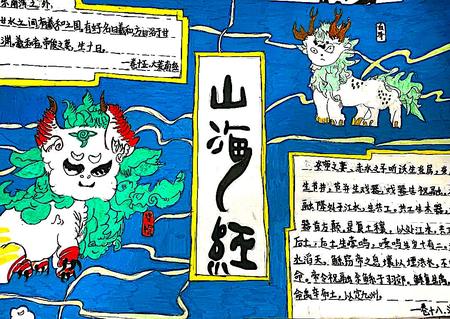 东南海之外,
甘水之间有羲和之国,有女子名曰羲和方日浴于甘
渊。羲和者,帝俊之妻,生十日。
—卷十五·大荒南经
山海經
炎帝之妻,赤水之子听訞生炎居,炎
生节并,节并生戏器,戏器生祝融,
融降处于江水,生共工,共工生术器,
器首方颠,是复土穰,以处江水,共工
后土,后土生噎鸣,噎鸣生岁十有二,
水滔天。鲧窃帝之息壤以堙洪水,不
命。帝令祝融杀鲧于羽郊。鲧复生禹,
命禹卒布土,以定九州。
—卷十八·